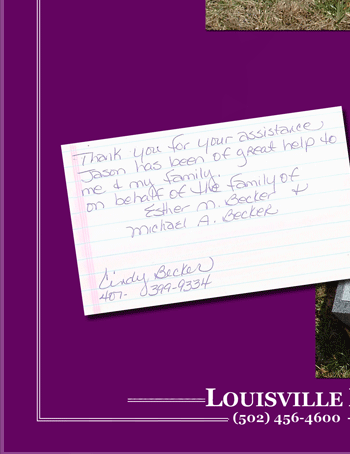 Thank you for your assistance
Jason has been of great help to
me & my family.
on behalf of the family of
Esther M. Becker &
Michael A. Becker
Cindy Becker
407- 399-9334
LOUISVILLE
(502) 456-4600